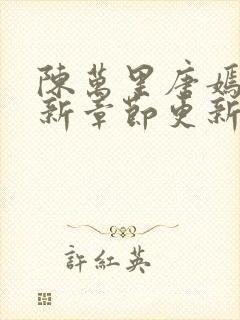 陳萬里唐嫣
新章節更新
許紅英